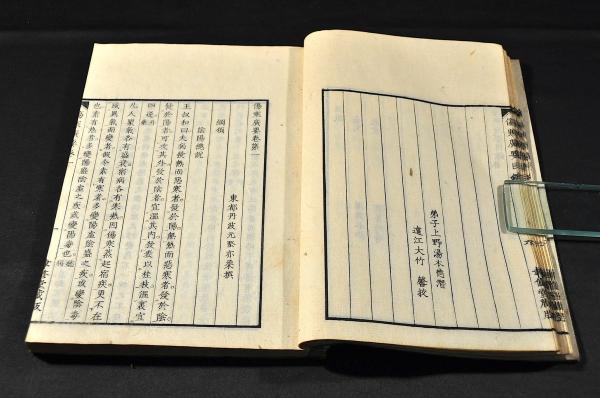 弟子上野湯本德潛
遠江大竹 馨 校
傷寒廣要卷第一
東都丹波元堅亦柔撰
綱領
陰陽總說
王叔和曰夫病發熱而惡寒者發於陽無熱而惡寒者發於陰
發於陽者可攻其外發於陰者宜溫其內發表以桂枝溫裏宜
四逆
凡人稟氣各有盛衰宿病各有寒熱因傷寒蒸起宿疾更不在
感異氣而變者假令素有寒者多變陽虛陰盛之疾或變陰毒
也素有熱者多變陽盛陰虛之疾或變陽毒也